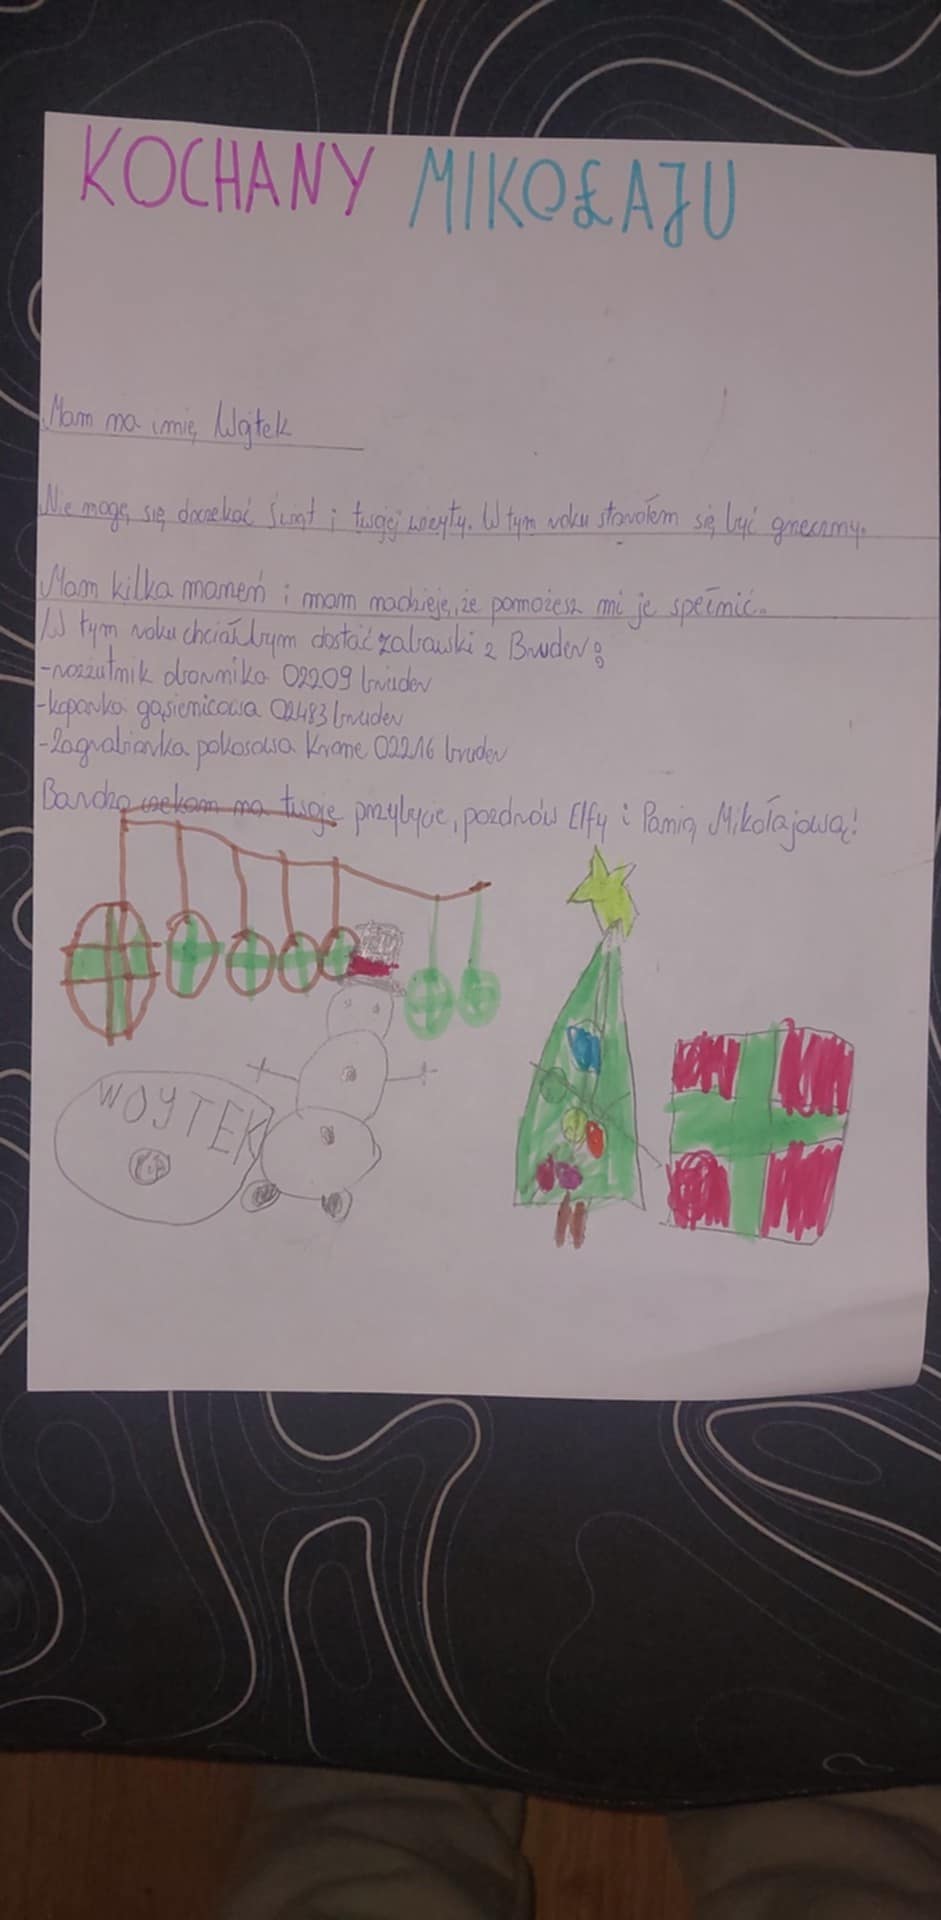 KOCHANY MIKOŁAJU
Mam na imię Wojtek
Nie mogę się doczekać Świąt i twojej wizyty. W tym roku starałem się być grzeczny.
Mam kilka marzeń i mam nadzieję, że pomożesz mi je spełnić.
W tym roku chciałbym dostać zabawki z Bruder:
-rozrzutnik obornika 02209 bruder
-koparka gąsienicowa 02483 bruder
-Zagrabiarka pokosowa Krone 02216 bruder
Bardzo czekam na twoje przybycie, pozdrów Elfy i Panią Mikołajową!
WOJTEK